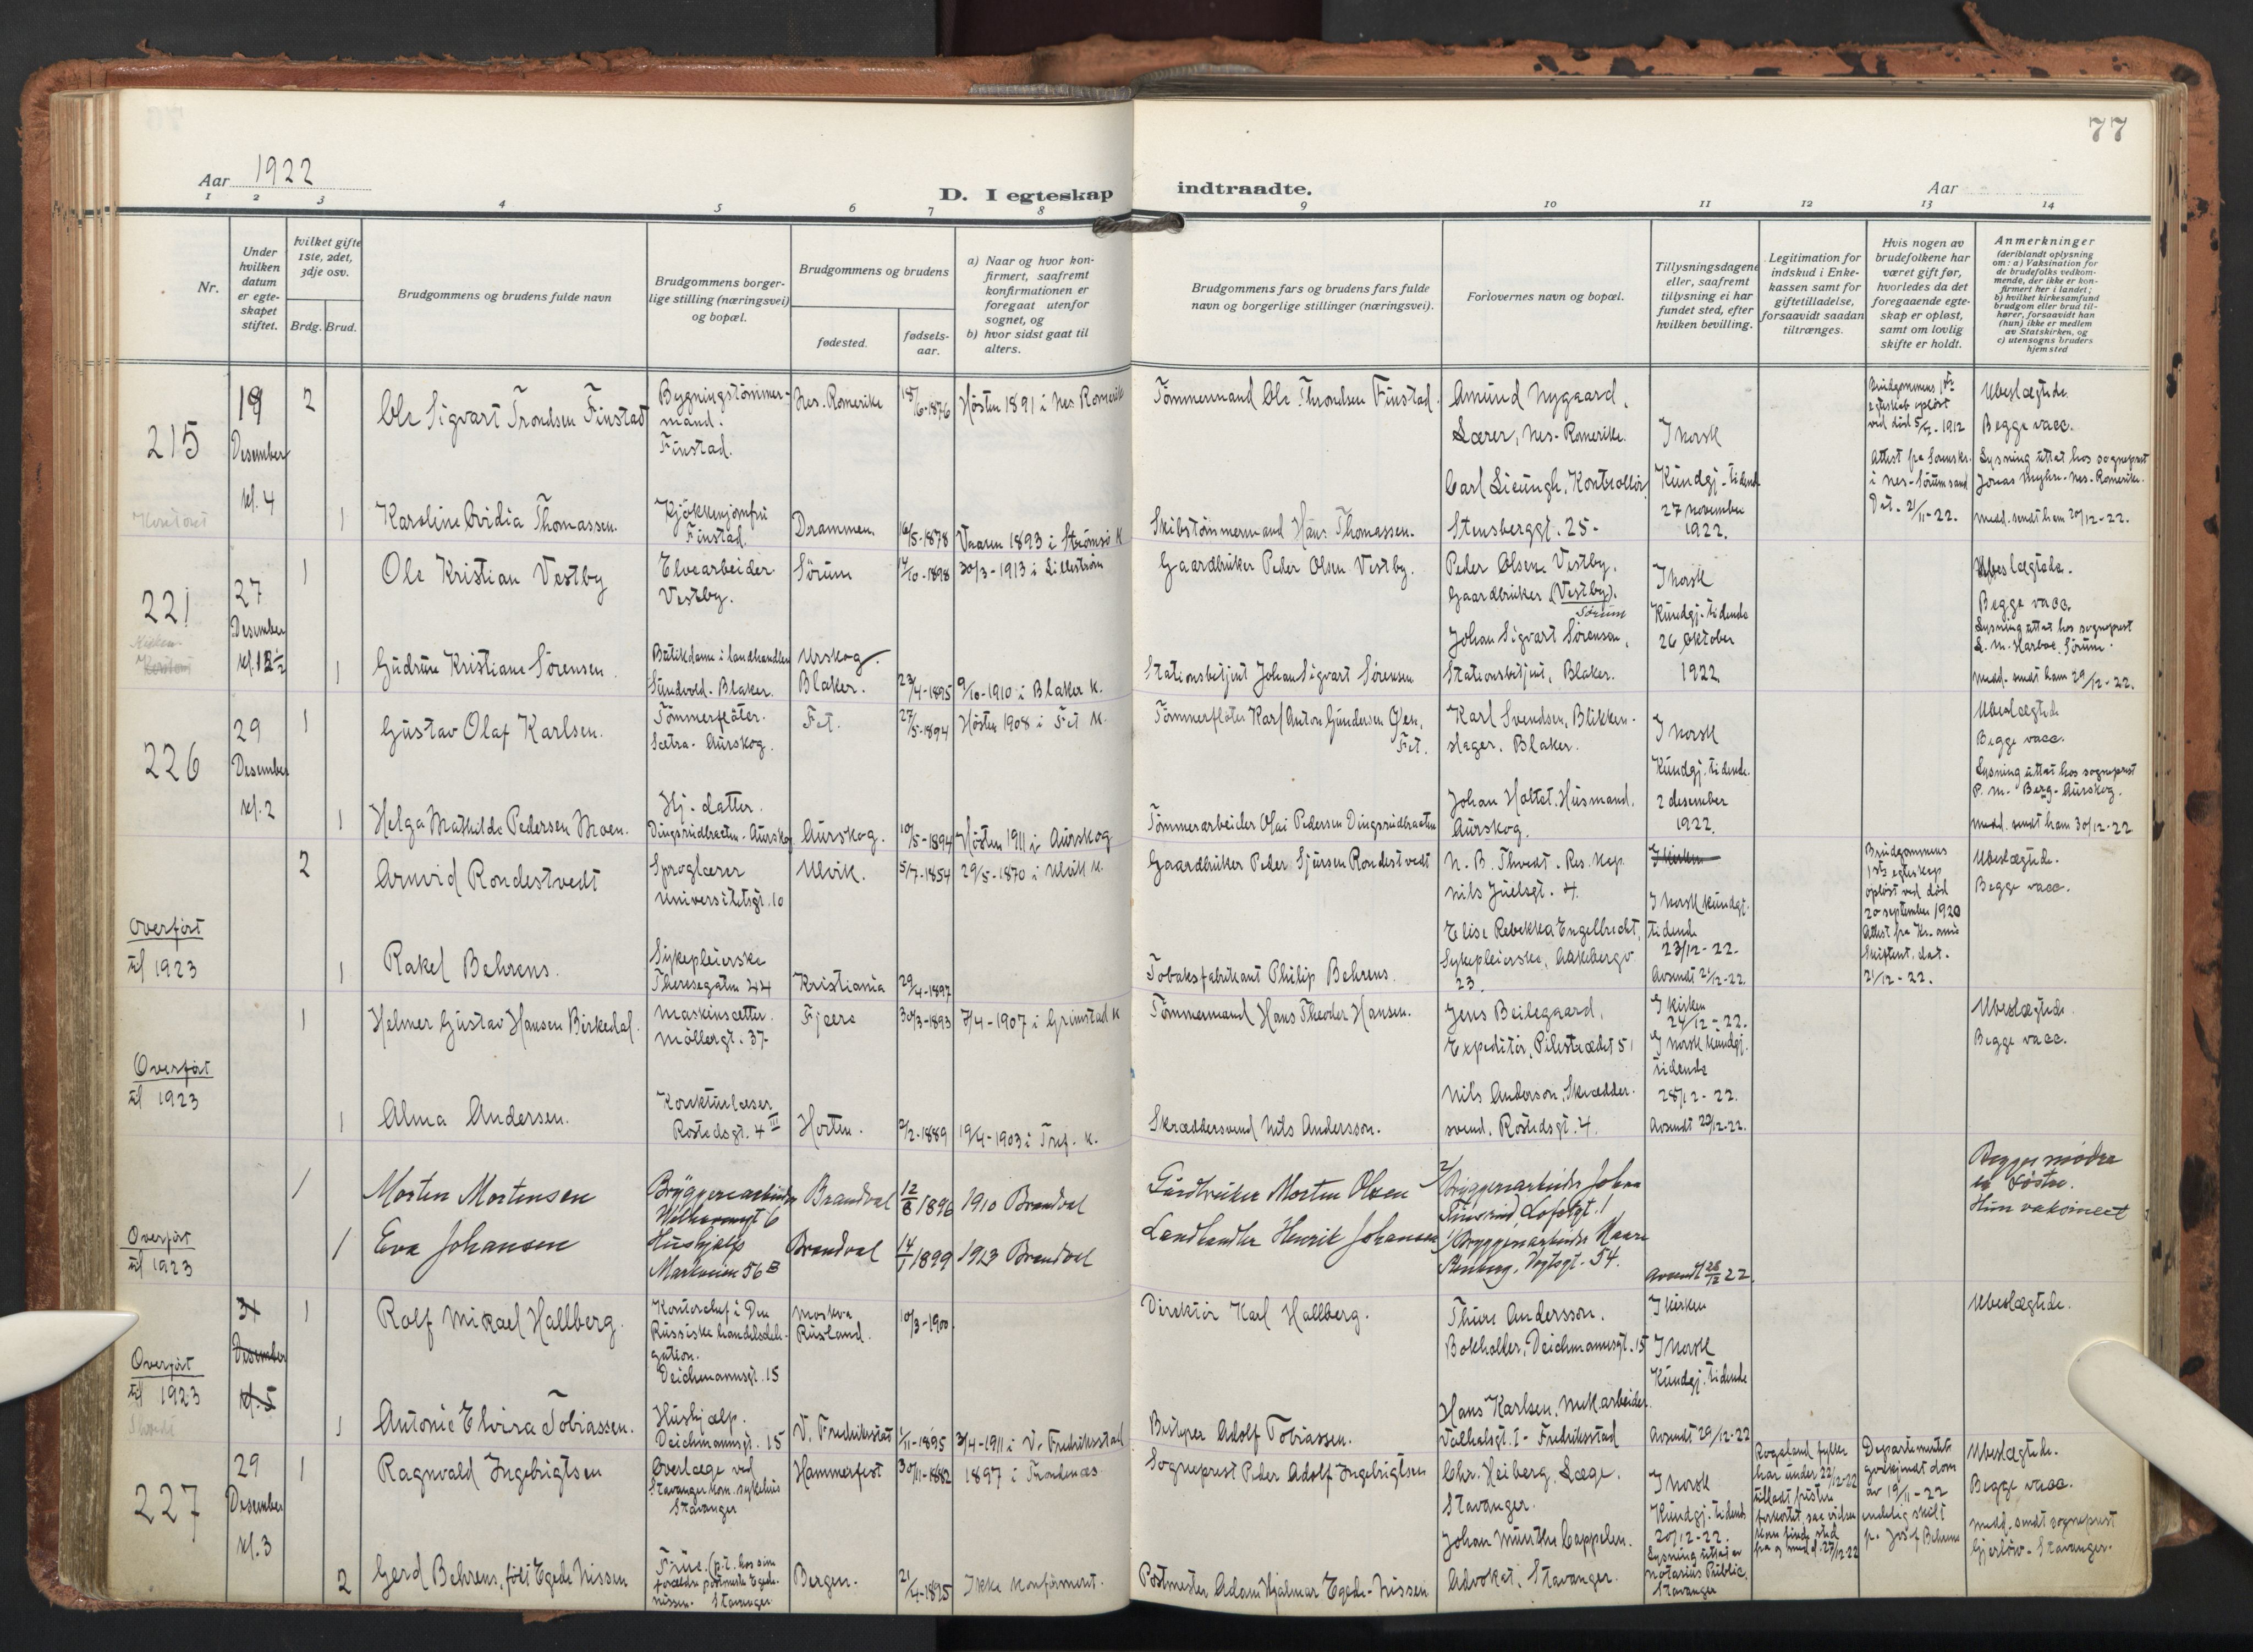 77
Aar 1922
D. I egteskap indtraadte.
Aar
1 2 3 4 5 6 7 8 9 10 11 12 13 14
Nr.
Under hvilken datum er egte-skapet stiftet.
hvilket gifte 1ste, 2det, 3dje osv.
Brdg. Brud.
Brudgommens og brudens fulde navn
Brudgommens borger-lige stilling (næringsvei) og bopæl.
Brudgommens og brudens
fødested.
fødsels-aar.
a) Naar og hvor kon-firmert, saafremt konfirmationen er foregaat utenfor sognet, og
b) hvor sidst gaat til alters.
Brudgommens fars og brudens fars fulde navn og borgerlige stillinger (næringsvei).
Forlovernes navn og bopæl.
Tillysningsdagene eller, saafremt tillysning ei har fundet sted, efter hvilken bevilling.
Legitimation for indskud i Enke-kassen samt for giftetilladelse, forsaavidt saadan tiltrænges.
Hvis nogen av brudefolkene har været gift før, hvorledes da det foregaaende egte-skap er opløst, samt om lovlig skifte er holdt.
Anmerkninger (deriblandt oplysning om: a) Vaksination for de brudefolks vedkom-mende, der ikke er kon-firmert her i landet; b) hvilket kirkesamfund brudgom eller brud til-hører, forsaavidt han (hun) ikke er medlem av Statskirken, og c) utensogns bruders hjemsted
215
19 Desember kl. 4
2
Ole Sigvart Trondsen Finstad
Bygningstömmer-mand. Finstad.
Nes. Romerike
18/6-1876
Høsten 1891 i Nes Romerik
Tömmermand Ole Throndsen Finstad.
Amund Nygaard, Lærer, Nes-Romerike.
Carl Lieungh, Kontrollør, Stensberggt. 25-
I Norsk Kundgj-tidend 27 november 1922.
Brudgommens 1ste egteskab opløst ved død 5/7-1912
Attest fra Sorensk. i Nes-Sörumsand Dat. 21/11-22.
Ubeslægtede.
Begge vacc.
Lysning uttat hos sogneprest Jonas Myhre-Nes-Romerike.
medd. sendt ham 20/12-22.
1
Karoline Ovidia Thomassen.
Kjökkenjomfru Finstad
Drammen.
16/5-1878
Vaaren 1893 i Strømsö K
Skibstömmermand Hans Thomassen.
221
27 Desember kl. 12½
1
Ole Kristian Vestby
Elvearbeider Vestby.
Sörum
14/10-1898
30/3-1913 i Lilleström
Gaardbruker Peder Olsen Vestby.
Peder Olsen Vestby. Gaardbruker (Vestby). Sörum
Johan Sigvart Sörensen, Stationsbetjent, Blaker.
I Norsk Kundgj-tidende 26 Oktober 1922
Ubeslægtede.
Begge vacc.
Lysning uttat hos sogneprest L. M. Harboe. Sörum.
medd. sendt ham 29/12-22.
1
Gudrun Kristiane Sörensen
Butikdame i landhandleri Sundvold-Blaker.
Urskog. Blaker.
23/4-1895
9/10-1910 i Blaker K.
Stationsbetjent Johan Sigvart Sörensen
226
29 Desember kl. 2
1
Gustav Olaf Karlsen.
Tömmerfløter. Sætra-Aurskog.
Fet.
27/5-1894
Høsten 1908 i Fet K.
Tömmerfløter Karl Anton Gundersen Öen, Fet.
Karl Svendsen, Blikken-slager. Blaker.
Johan Holtet. Husmand. Aurskog.
I Norsk Kundgj. tidende. 2 desember 1922.
Ubeslægtede
Begge vacc.
Lysning uttat hos sogneprest P. M. Berg-Aurskog.
medd. sendt ham 30/12-22
1
Helga Mathilde Pedersen Moen.
Hj. datter. Dingsrudbraaten-Aurskog
Aurskog.
10/5-1894
Høsten 1911 i Aurskog
Tömmerarbeider Olai Pedersen Dingsrudbraaten
Overført til 1923
2
Arnvid Rondestvedt
Sproglærer Universitetsgt. 10
Ulvik.
5/7-1854
29/5-1870 i Ulvik K.
Gaardbruker Peder Sjursen Rondestvedt
N. B. Thvedt. Res. Kap. Nils Juelsgt. 4.
Elise Rebekka Engelbrecht, Sykepleierske, Aakebergv 23.
I Kirken
I Norsk Kundgj. tidende 23/12-22. Avsendt 21/12-22.
Brudgommens 1ste egteskap opløst ved død 20 september 1920
Attest fra Kr.ania Skifteret. dat. 21/12-22.
Ubeslægtede.
Begge vacc.
1
Rakel Behrens.
Sykepleierske Theresegaten 44
Kristiania
29/4-1897
Tobaksfabrikant Philip Behrens.
Overført til 1923
1
Helmer Gustav Hansen Birkedal.
Maskinsætter. Möllergt. 37-
Fjære
30/3-1893
7/4-1907 i Grimstad K
Tömmermand Hans Theodor Hansen.
Jens Beilegaard, Expeditör, Pilestrædet 51
Nils Anderson, Skrædder-svend. Röstedsgt. 4.
I Kirken 24/12-22.
I Norsk Kundgj. tidende 28/12-22.
Avsendt 22/12-22.
Ubeslægtede.
Begge vacc.
1
Alma Andersen.
Korekturlæser Rostedsgt. 4 III
Horten.
2/2-1889
19/4-1903 i Tref. K.
Skræddersvend Nils Andersson.
Overført til 1923
1
Morten Mortensen
Bryggeriarbeider
Brandval
12/8 1896
1910 Brandval
Gårdbruker Morten Olsen
Bryggeriarbeider Johan Lofotgt. 1
Begge mødre er söstre.
Hun vaksineet
1
Eva Johansen
Hushjelp Markveien 56 B
Brandval
14/1 1899
1913 Brandval
Landhandler Henrik Johansen
Bryggeriarbeider Kaare Vogtsgt. 54.
Avsendt 28/12 22.
Overført til 1923
31 Desember kl. 5
1
Rolf Mikael Hallberg.
Kontorchef i Den Russiske handelsdele-gation. Deichmannsgt. 15
Moskva Rusland.
10/3-1900
Direktör Karl Hallberg.
Thure Andersson. Bokholder, Deichmannsgt. 15
Hans Karlsen, Mek. arbeider. Valhalsgt. 1-Fredriksstad
I Kirken
I Norsk Kundgj. tidende
Avsendt 29/12-22
Ubeslægtede.
1
Antonie Elvira Tobiassen.
Hushjælp. Deichmannsgt. 15
V. Fredrikstad
1/11-1895
3/4-1911 i V. Fredriksstad
Bestyrer Adolf Tobiassen.
227
29 Desember kl. 3
1
Ragnvald Ingebrigtsen
Overlæge ved Stavanger kom. sykehus Stavanger
Hammerfest
30/11-1882
1897 i Trondenæs
Sogneprest Peder Adolf Ingebrigtsen
Chr. Heiberg, Læge. Stavanger.
Johan Munthe Cappelen. Advokat, Stavanger.
I Norsk Kundgj. tidende 20/12-22. Lysning uttat av notarius Public. Stavanger
Rogaland fylke har under 22/12-22 tillatt fristen forkortet, saa vielsen kan finde sted fra og med 27/12-22
Departementets godkjendt dom av 19/11-22 endelig skilt fr. Josef Behrens
Ubeslægtede.
Begge vacc.
medd. sendt sogneprest Gjerlöw-Stavanger.
2
Gerd Behrens, født Egede Nissen
Frue. (p.t. hos sine forældre postmester Egede-Nissen. Stavanger
Bergen.
21/4-1895
Ikke konfirmeret.
Postmester Adam Hjalmar Egede-Nissen